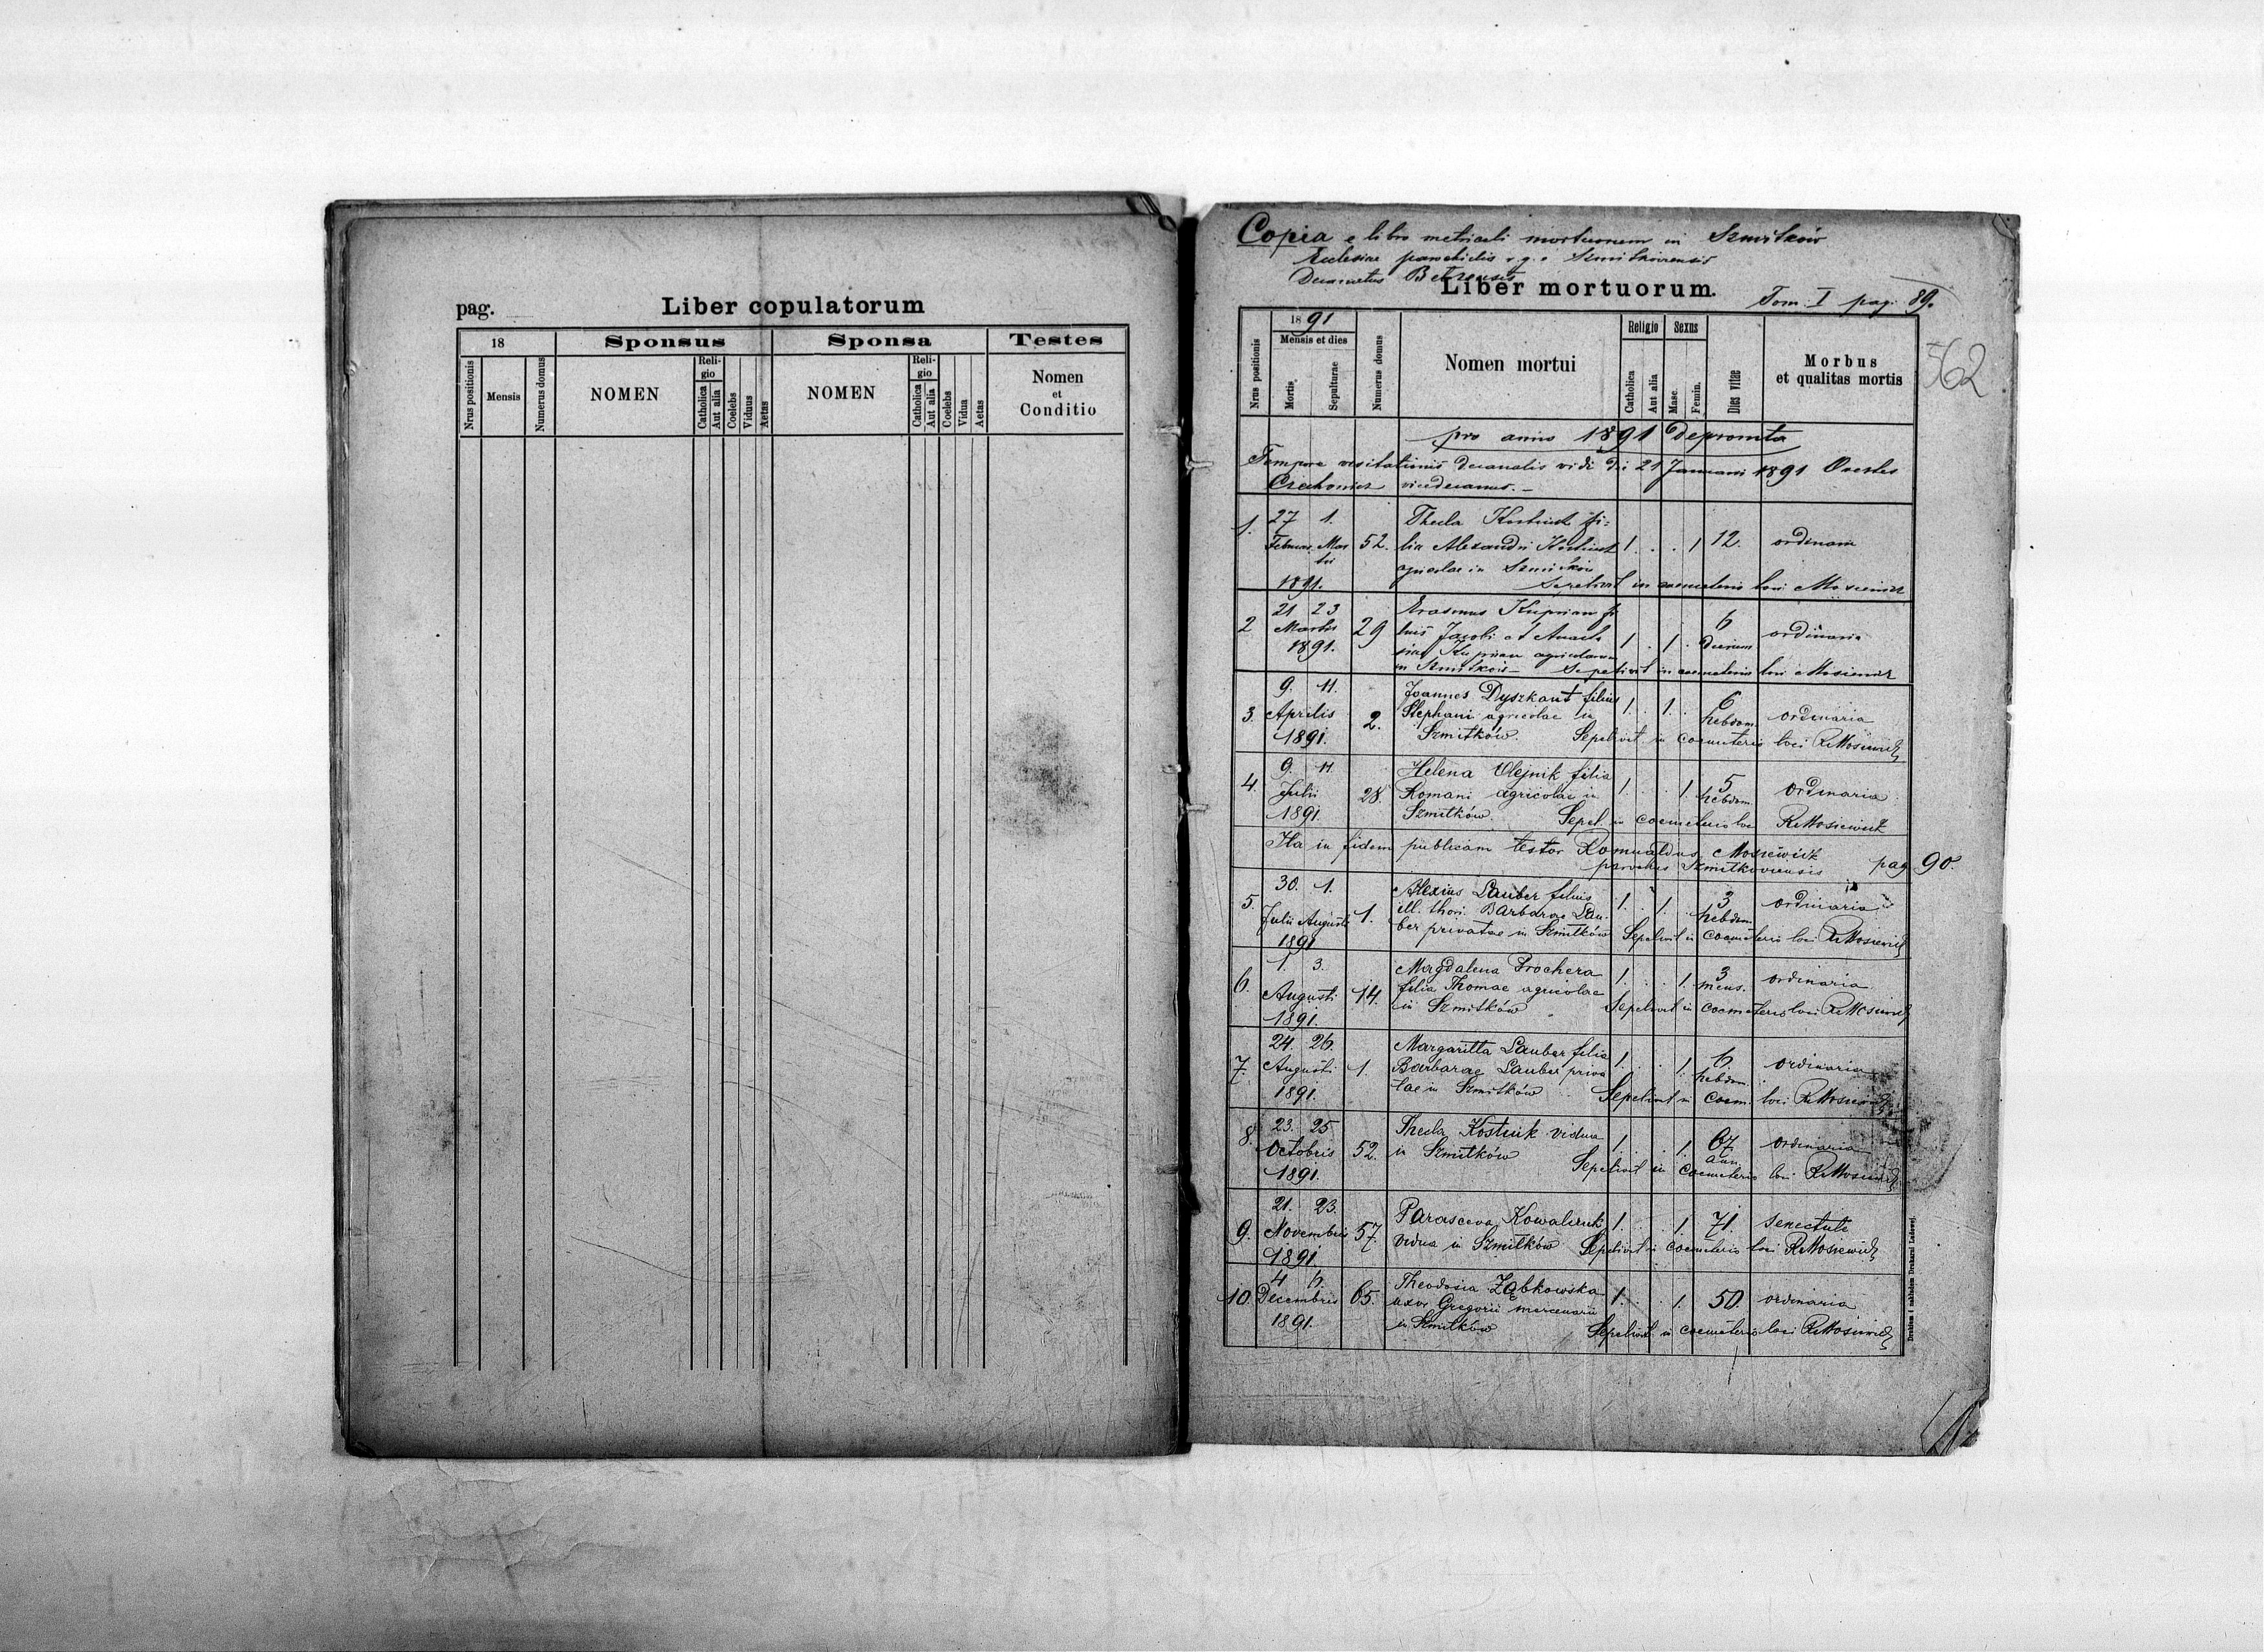 pag.
Liber copulatorum
18
Sponsus
Sponsa
Testes
Nrus positionis
Mensis
Numerus domus
NOMEN
Religio
Catholica
Aut alia
Coelebs
Viduus
Aetas
NOMEN
Religio
Catholica
Aut alia
Coelebs
Vidua
Aetas
Nomen
et
Conditio
Copia e libro metricali mortuorum in Szmitków
Ecclesiae parochialis r. g. c. Szmitkoviensis
Decanatus
Liber mortuorum.
Tom. I pag. 89.
562
Nrus positionis
1891
Mensis et dies
Mortis
Sepulturae
Numerus domus
Nomen mortui
Religio
Catholica
Aut alia
Sexus
Masc.
Femin.
Dies vitae
Morbus
et qualitas mortis
pro anno 1891 depromta
Tempore visitationis decanalis vidi die 21 Januarii 1891 Orestes
vicedecanus. –
1. 27 1. Thecla fi-
Februar. Mar 52. lia Alexandri 1 . . 1 12. ordinaria
tii agricolae in Szmitków
1891. Sepelivit in coemeterio loci Mosiewicz
2 21 23 Erasmus Kuprian fi
Martis 29 lius Jacobi et Anasta 1 . 1 . 6 dierum ordinaria
1891. siae Kuprian agricolarum
in Szmitków Sepelivit in coemeterio loci Mosiewicz
9. 11. Joannes Dyszkant filius
3. Aprilis 2. Stephani agricolae in 1. . 1. . 6 hebdom. ordinaria
1891. Szmitków. Sepelivit in coemeterio loci RMosiewicz
9. 11. Helena Olejnik filia
4. Julii 28. Romani agricolae in 1. . . 1. 5 hebdom. ordinaria
1891. Szmitków. Sepel. in coemeterio loc RMosiewicz
Ita in fidem publicam testor Romualdus Mosiewicz
parochus Szmitkoviensis pag 90.
30. 1. Alexius Lauber filius
5. Julii Augusti 1. ill. thori Barbarae Lau- 1. . 1. . 3 hebdom. ordinaria
1891 ber privatae in Szmitków Sepelivit in coemeterio loci RMosiewicz
1. 3. Magdalena Prochera
6. Augusti 14. filia Thomae agricolae 1. . . 1. 3 mens. ordinaria
1891. in Szmitków Sepelivit in coemeterio loci RMosiewicz
24. 26. Margaritta Lauber filia
7. Augusti 1. Barbarae Lauber priva 1. . . 1. 6. hebdom. ordinaria
1891. tae in Szmitków Sepelivit in coem. loci RMosiewicz
8. 23. 25 Thecla Kostiuk vidua
Octobris 52. in Szmitków 1. . . 1. 67 ann. ordinaria
1891. Sepelivit in coemeterio loci RMosiewicz
21. 23. Parasceva Kowalczuk 1. . . 1 71. senectute
9. Novembris 57. vidua in Szmitków Sepelivit in coemeterio loci RMosiewicz
1891
4 6. Theodosia Ząbkowska
10. Decembris 65. uxor Gregorii mercenarii 1. . . 1. 50. ordinaria
1891. in Szmitków Sepelivit in coemeterio loci RMosiewicz
Drukiem i nakładem Drukarni Ludowej.